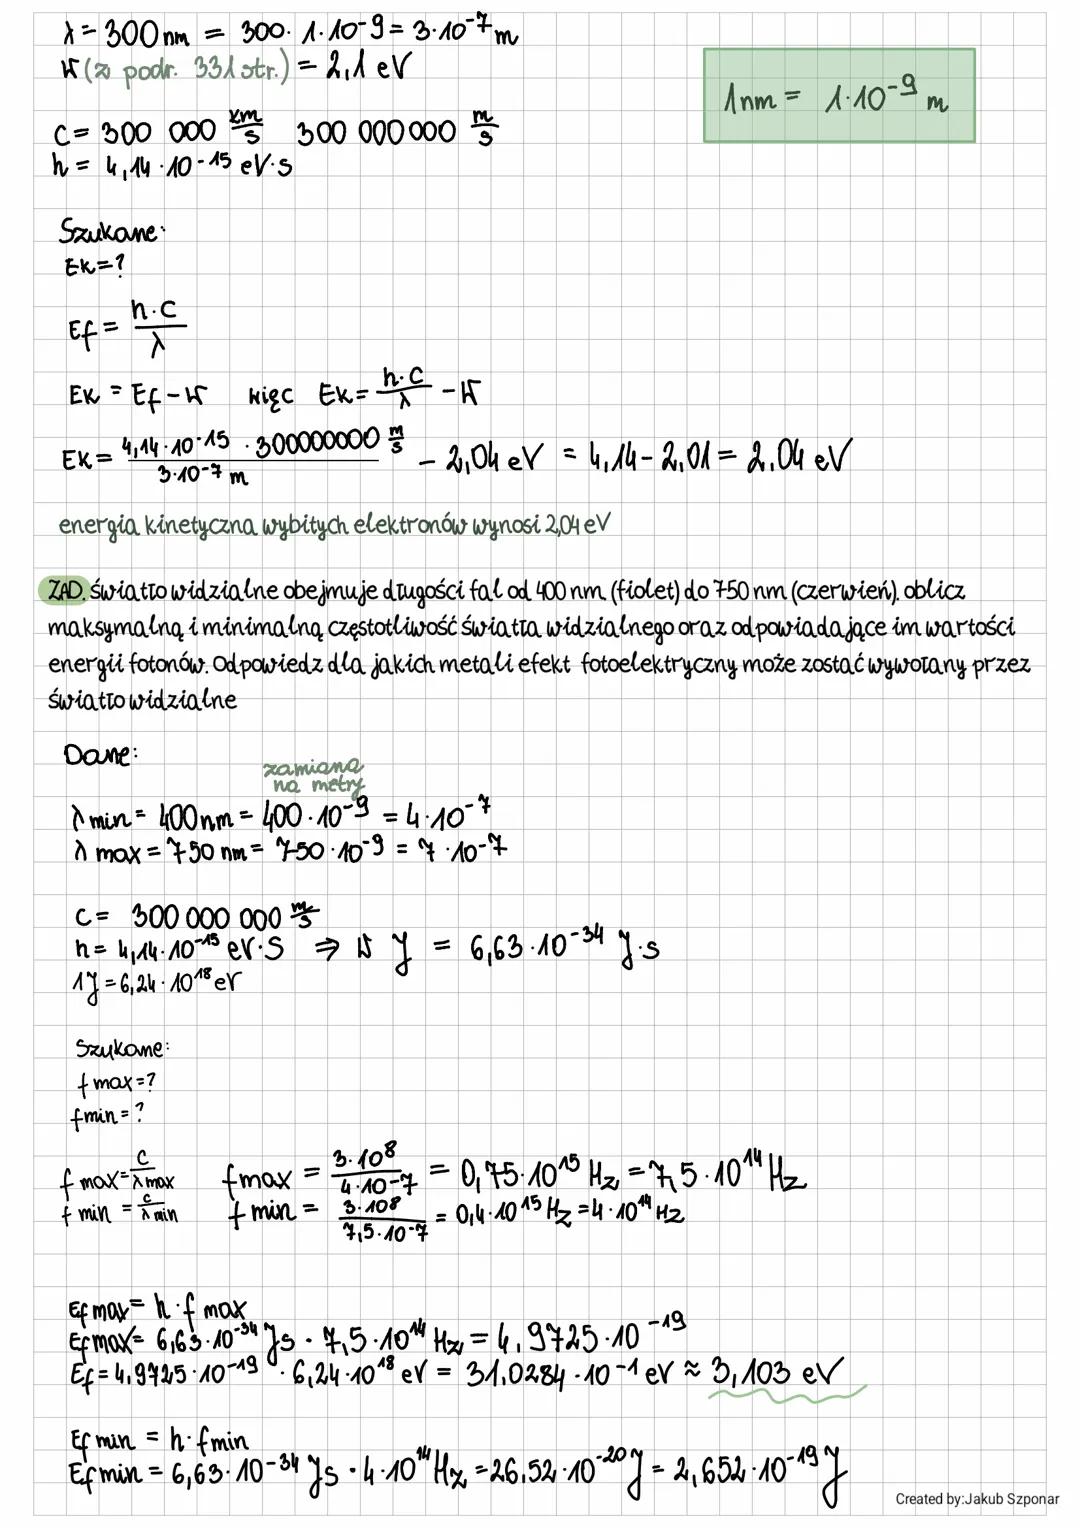 λ = 300 nm = 300 · 1 · 10-9 = 3 · 10-7 m
W (z podr. 331 str.) = 2,1 eV
1 nm = 1 · 10-9 m
C = 300 000 km/s 300 000 000 m/s
h = 4,14 · 10-15 eV·s
Szukane:
Ek = ?
Ef = h·C/λ
Ek = Ef - W więc Ek = h·C/λ - W
Ek = 4,14 · 10-15 · 300000000 m/s / 3·10-7 m - 2,04 eV = 4,14 - 2,01 = 2,04 eV
energia kinetyczna wybitych elektronów wynosi 2,04 eV
ZAD. światło widzialne obejmuje długości fal od 400 nm (fiolet) do 750 nm (czerwień). oblicz
maksymalną i minimalną częstotliwość światła widzialnego oraz odpowiadające im wartości
energii fotonów. Odpowiedz dla jakich metali efekt fotoelektryczny może zostać wywołany przez
światło widzialne
Dane:
zamiana
na metry
λ min = 400 nm = 400 · 10-9 = 4 · 10-7
λ max = 750 nm = 750 · 10-9 = 7 · 10-7
C = 300 000 000 m/s
h = 4,14 · 10-15 eV·S ⇒ W J = 6,63 · 10-34 J·s
1J = 6,24 · 10 18 eV
Szukane:
f max = ?
fmin = ?
f max = C/λ max fmax = 3·10 8 / 4·10-7 = 0,75 · 10 15 Hz = 7,5 · 10 14 Hz
f min = C/λ min f min = 3·10 8 / 7,5·10-7 = 0,4 · 10 15 Hz = 4 · 10 14 Hz
Ef max = h · f max
Ef max = 6,63 · 10-34 Js · 7,5 · 10 14 Hz = 4,9725 · 10 -19
Ef = 4,9725 · 10-19 · 6,24 · 10 18 eV = 31,0284 · 10-1 eV ≈ 3,103 eV
Ef min = h · fmin
Ef min = 6,63 · 10-34 Js · 4 · 10 14 Hz = 26,52 · 10-20 J = 2,652 · 10-19 J
Created by:Jakub Szponar